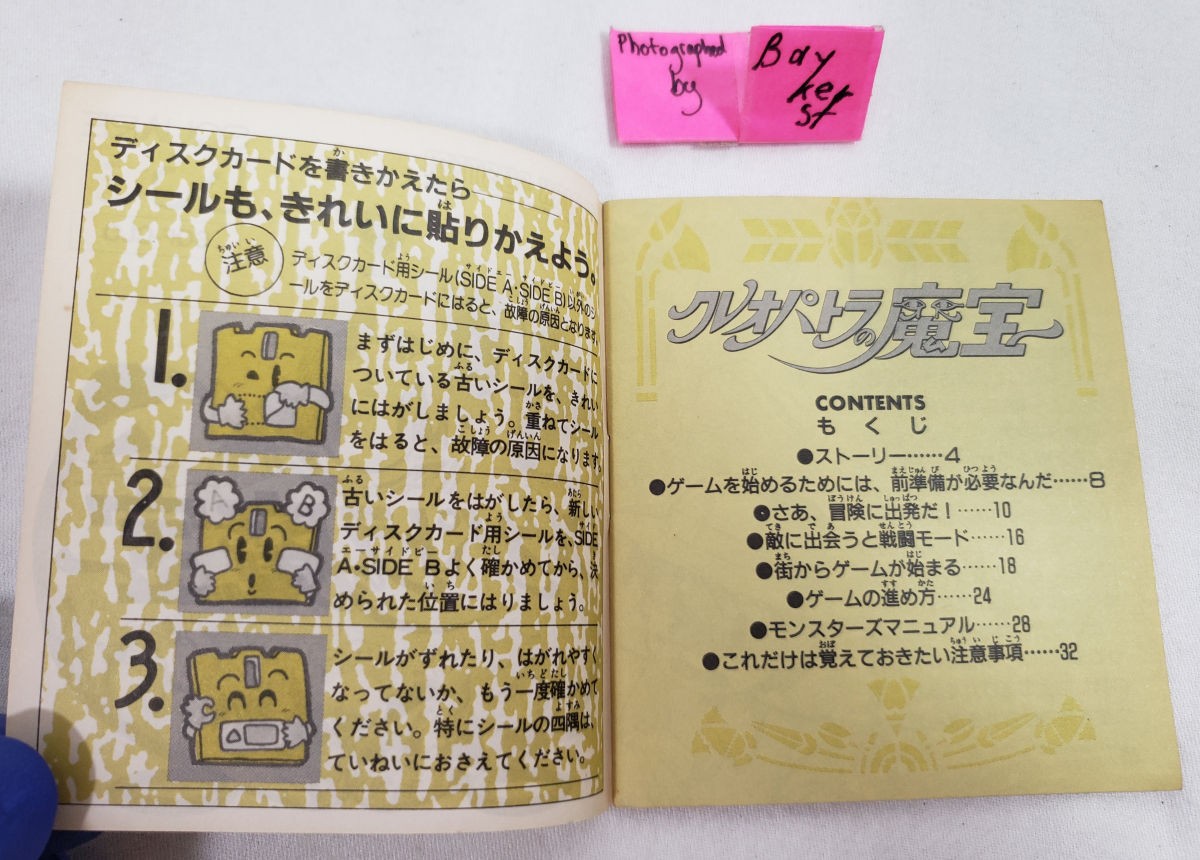 Photographed
by
Bay
ker
st
ディスクカードを書きかえたら
シールも、きれいに貼りかえよう。
注意
ディスクカード用シール(SIDE A・SIDE B)以外のシ
ールをディスクカードにはると、故障の原因となります。
1.
まずはじめに、ディスクカードに
ついている古いシールを、きれい
にはがしましょう。重ねてシール
をはると、故障の原因になります。
2.
A
B
古いシールをはがしたら、新しい
ディスクカード用シールを、SIDE
A・SIDE Bよく確かめてから、決
められた位置にはりましょう。
3.
シールがずれたり、はがれやすく
なってないか、もう一度確かめて
ください。特にシールの四隅は、
ていねいにおさえてください。
クレオパトラの魔宝
CONTENTS
もくじ
●ストーリー……4
●ゲームを始めるためには、前準備が必要なんだ……8
●さあ、冒険に出発だ!……10
●敵に出会うと戦闘モード……16
●街からゲームが始まる……18
●ゲームの進め方……24
●モンスターズマニュアル……28
●これだけは覚えておきたい注意事項……32